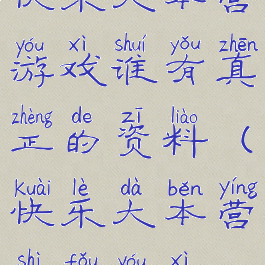 快乐大本营
yóu xì shuí yǒu zhēn
游戏谁有真
zhèng de zī liào
正的资料（
kuài lè dà běn yíng
快乐大本营
shì fǒu yóu xì